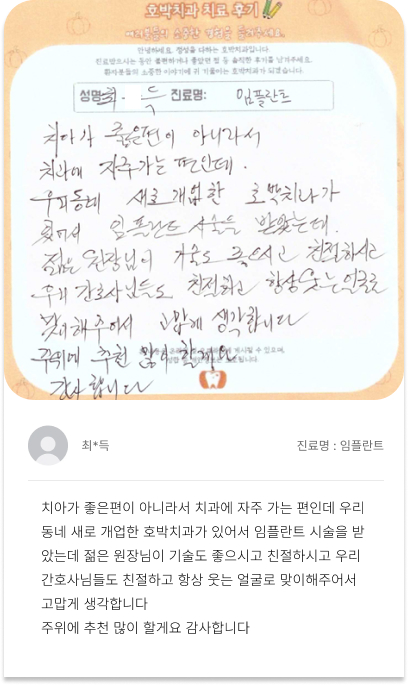 호박치과 치료 후기
여러분들의 소중한 경험을 들려주세요.
안녕하세요. 정성을 다하는 호박치과입니다.
진료받으시는 동안 불편하거나 좋았던 점 등 솔직한 후기를 남겨주세요.
환자분들의 소중한 이야기에 귀 기울이는 호박치과가 되겠습니다.
성명: 최 · 득 진료명: 임플란트
치아가 좋은편이 아니라서
치과에 자주가는 편인데.
우리동네 새로개업한 호박치과가
있어서 임플란트 시술을 받았는데.
젊은 원장님이 기술도 좋으시고 친절하시고
우리 간호사님들도 친절하고 항상웃는얼굴로
맞이해주어서 고맙게 생각합니다
주위에 추천 많이 할게요
감사합니다
최*득
진료명 : 임플란트
치아가 좋은편이 아니라서 치과에 자주 가는 편인데 우리
동네 새로 개업한 호박치과가 있어서 임플란트 시술을 받
았는데 젊은 원장님이 기술도 좋으시고 친절하시고 우리
간호사님들도 친절하고 항상 웃는 얼굴로 맞이해주어서
고맙게 생각합니다
주위에 추천 많이 할게요 감사합니다